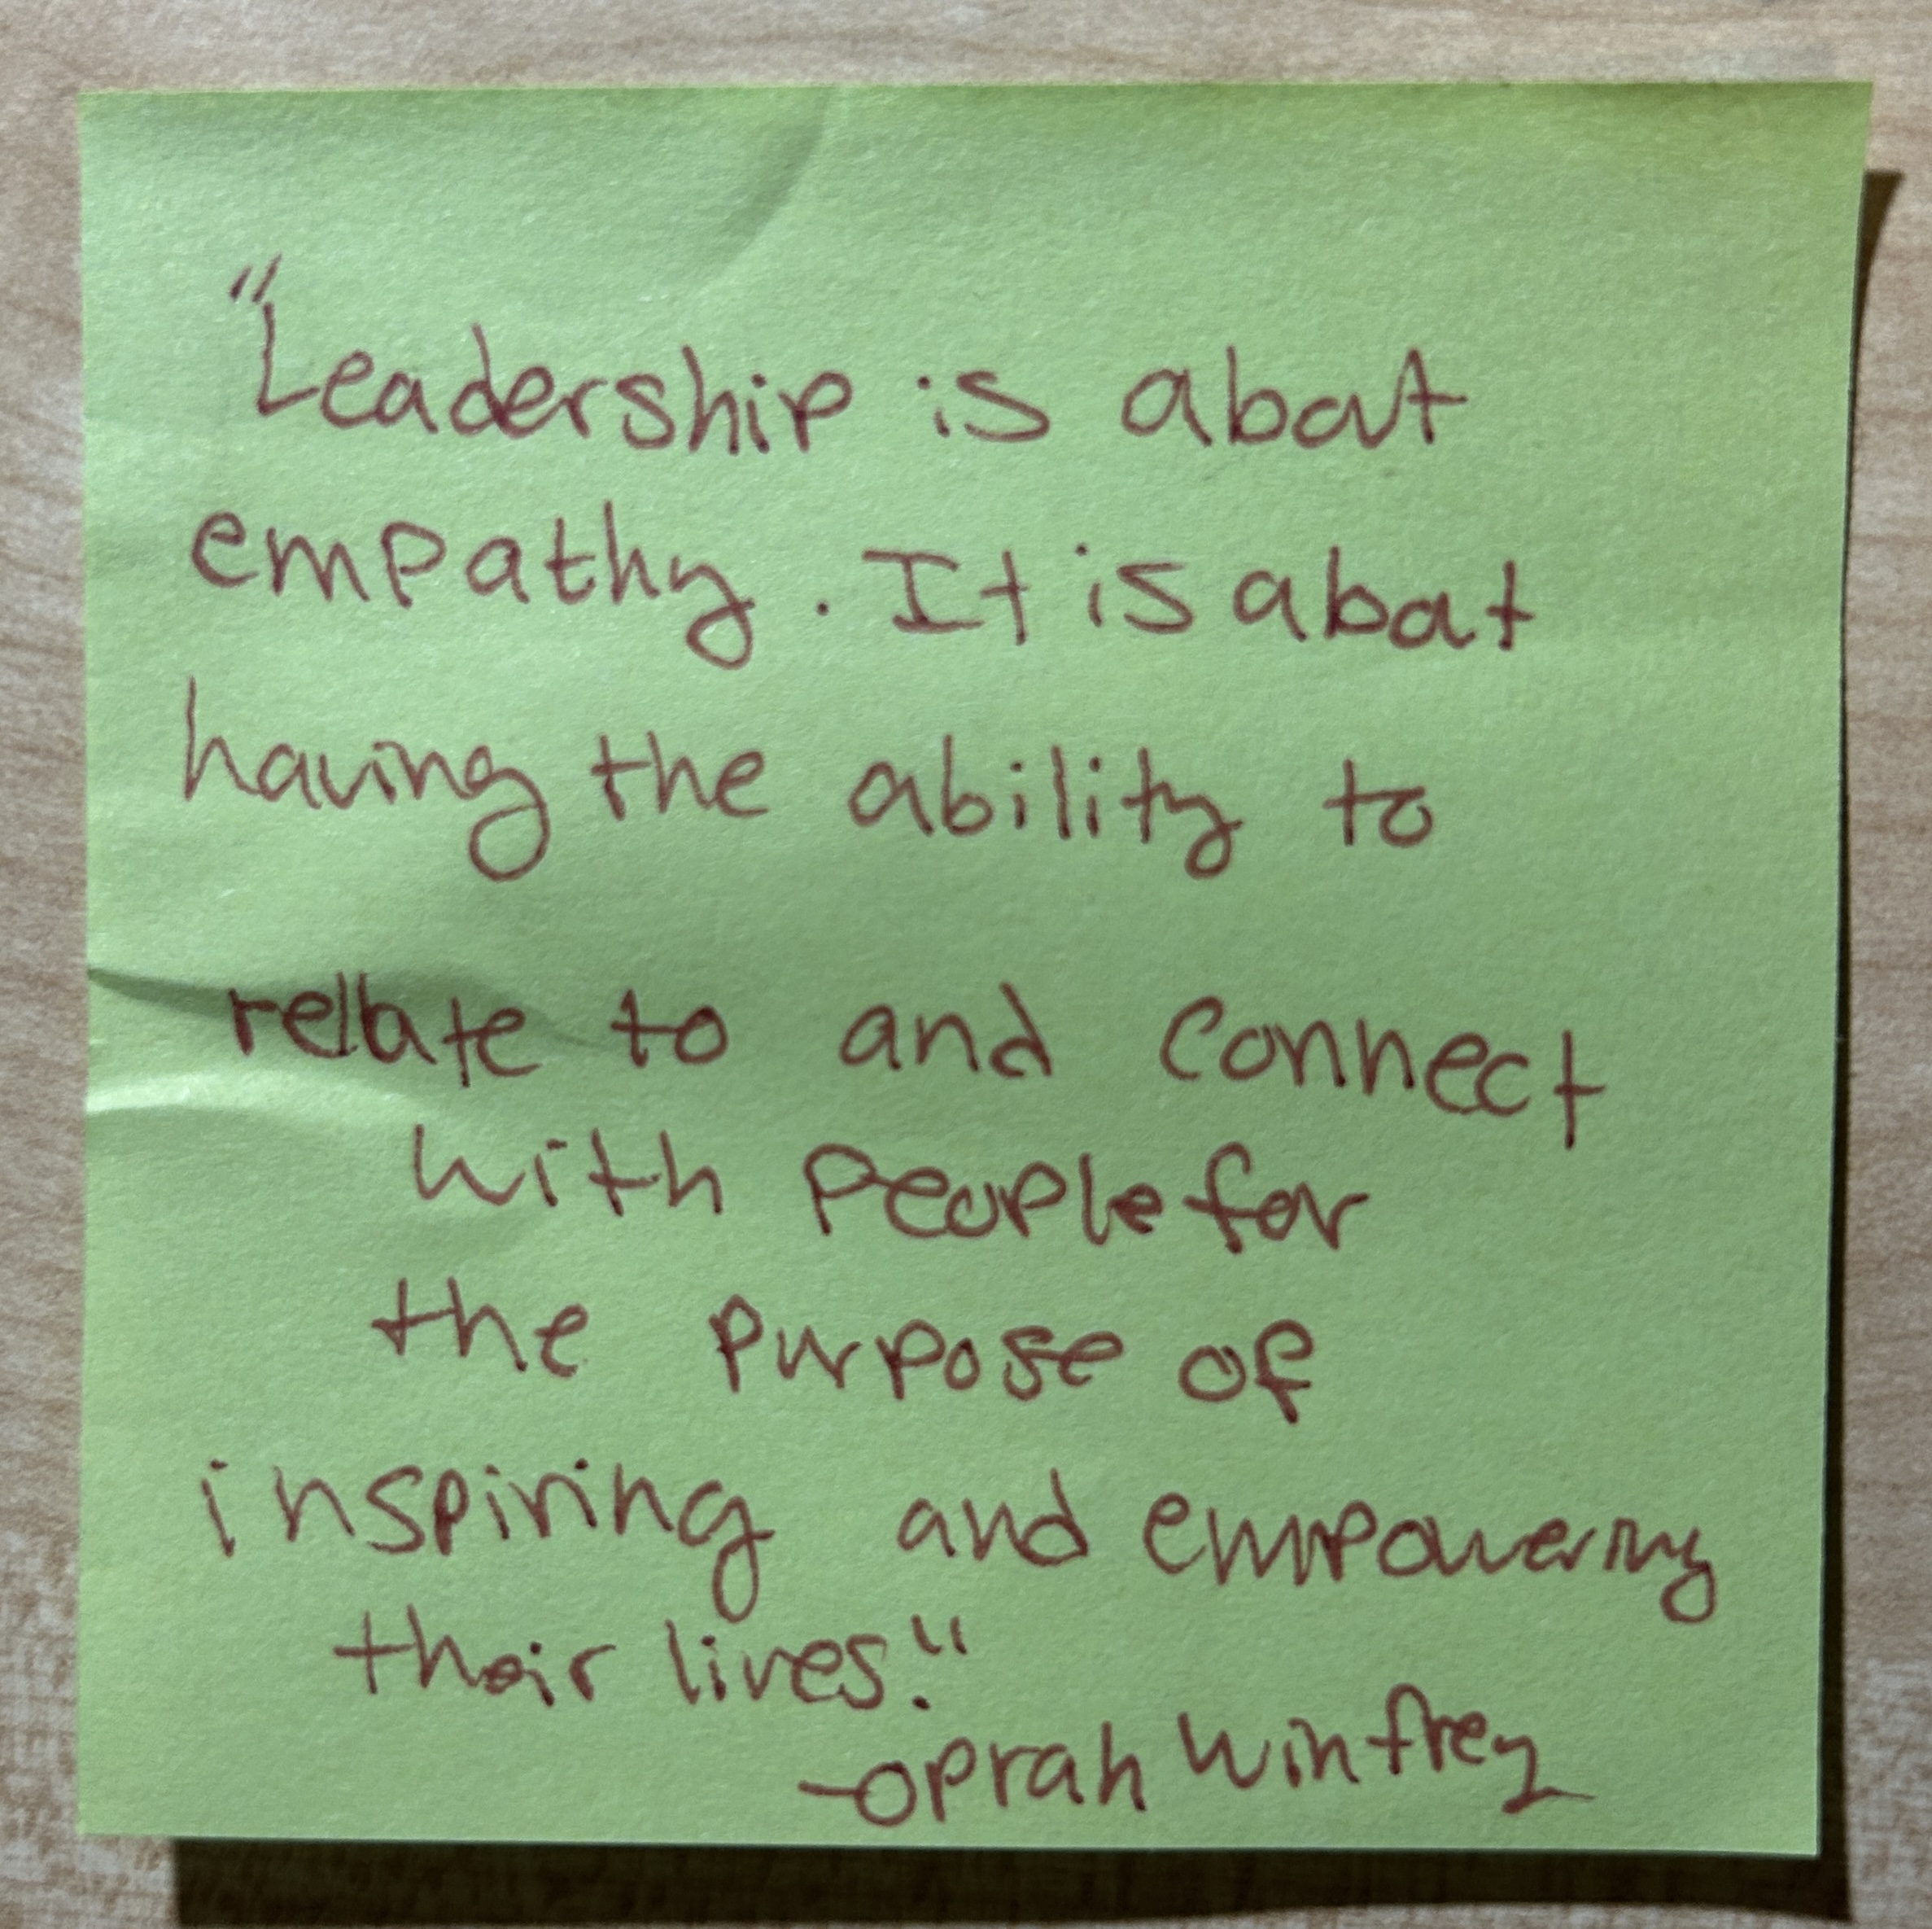 "Leadership is about
empathy. It is about
having the ability to
relate to and connect
with people for
the purpose of
inspiring and empowering
their lives."
-Oprah Winfrey